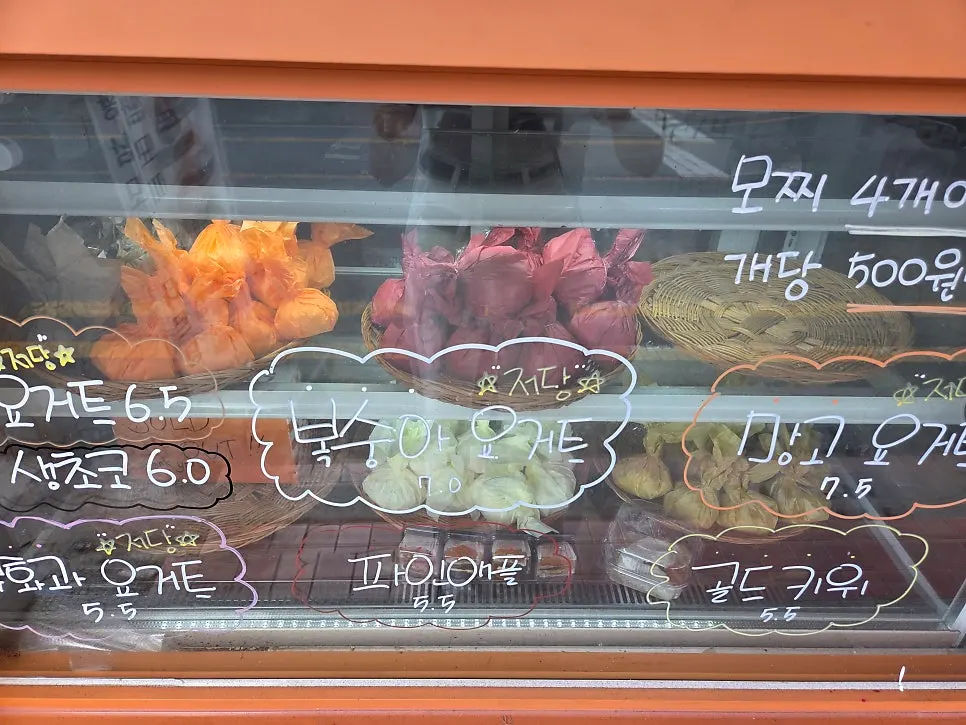 모찌 4개
개당 500원
저당
요거트 6.5
생초코 6.0
저당
복숭아 요거트
7.0
저당
망고 요거트
7.5
저당
화과 요거트
5.5
파인애플
5.5
골드키위
5.5